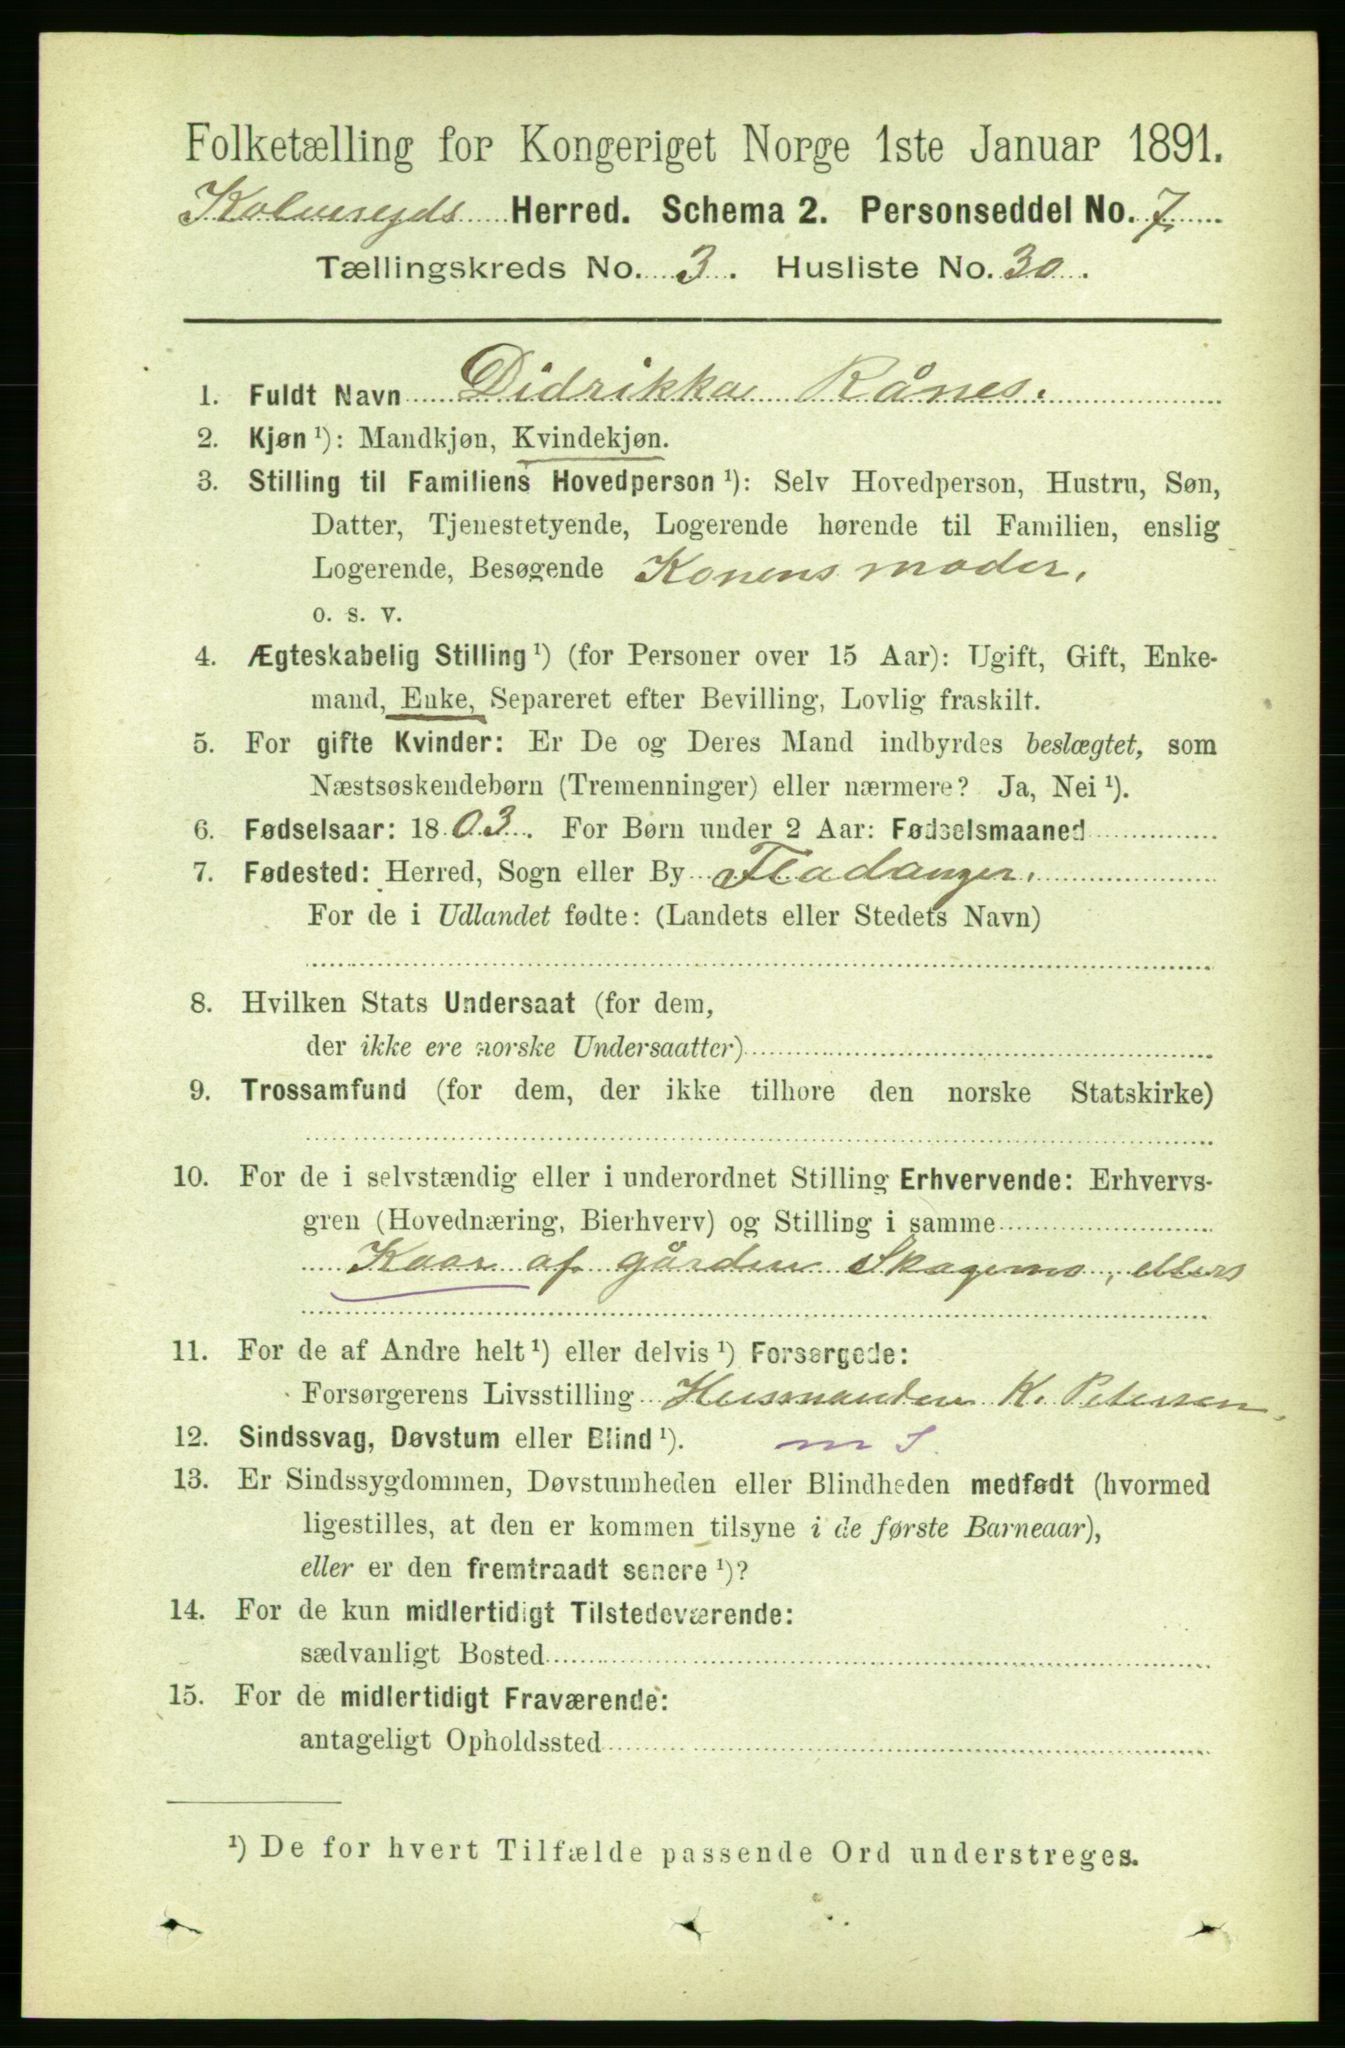 Folketælling for Kongeriget Norge 1ste Januar 1891.
Kolvereyds Herred. Schema 2. Personseddel No. 7.
Tællingskreds No. 3. Husliste No. 30.
1. Fuldt Navn Didrikka Rånes.
2. Kjøn ¹): Mandkjøn, Kvindekjøn.
3. Stilling til Familiens Hovedperson ¹): Selv Hovedperson, Hustru, Søn,
Datter, Tjenestetyende, Logerende hørende til Familien, enslig
Logerende, Besøgende Konens moder,
o. s. v.
4. Ægteskabelig Stilling ¹) (for Personer over 15 Aar): Ugift, Gift, Enke-
mand, Enke, Separeret efter Bevilling, Lovlig fraskilt.
5. For gifte Kvinder: Er De og Deres Mand indbyrdes beslægtet, som
Næstsøskendebørn (Tremenninger) eller nærmere? Ja, Nei ¹).
6. Fødselsaar: 1803. For Børn under 2 Aar: Fødselsmaaned
7. Fødested: Herred, Sogn eller By Fladanger.
For de i Udlandet fødte: (Landets eller Stedets Navn)
8. Hvilken Stats Undersaat (for dem,
der ikke ere norske Undersaatter)
9. Trossamfund (for dem, der ikke tilhøre den norske Statskirke)
10. For de i selvstændig eller i underordnet Stilling Erhvervende: Erhvervs-
gren (Hovednæring, Bierhverv) og Stilling i samme
Kaar af gården Skagemo, ellers
11. For de af Andre helt ¹) eller delvis ¹) Forsørgede:
Forsørgerens Livsstilling Husmanden K. Petersen.
12. Sindssvag, Døvstum eller Blind ¹). m S.
13. Er Sindssygdommen, Døvstumheden eller Blindheden medfødt (hvormed
ligestilles, at den er kommen tilsyne i de første Barneaar),
eller er den fremtraadt senere ¹)?
14. For de kun midlertidigt Tilstedeværende:
sædvanligt Bosted
15. For de midlertidigt Fraværende:
antageligt Opholdssted
¹) De for hvert Tilfælde passende Ord understreges.